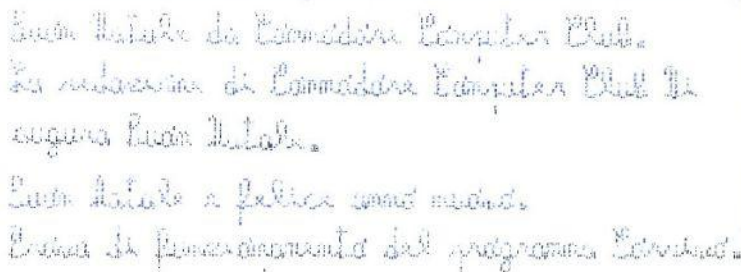 Buon Natale da Commodore Computer Club.
La redazione di Commodore Computer Club Vi
augura Buon Natale.
Buon Natale e felice anno nuovo.
Prova di funzionamento del programma Corsivo.